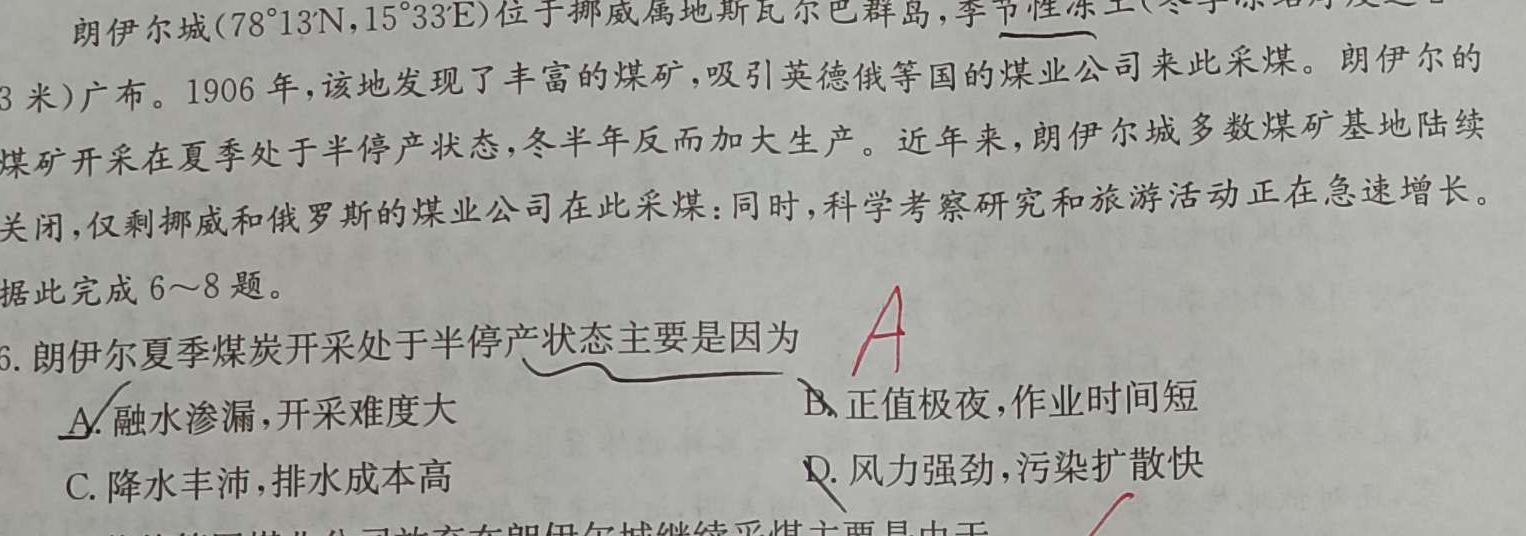 朗伊尔城(78°13′N,15°33′E)位于挪威属地斯瓦尔巴群岛,季节性冻土(冬季冻结厚度
3 米)广布。1906 年,该地发现了丰富的煤矿,吸引英德俄等国的煤业公司来此采煤。朗伊尔的
煤矿开采在夏季处于半停产状态,冬半年反而加大生产。近年来,朗伊尔城多数煤矿基地陆续
关闭,仅剩挪威和俄罗斯的煤业公司在此采煤;同时,科学考察研究和旅游活动正在急速增长。
据此完成 6～8 题。
6. 朗伊尔夏季煤炭开采处于半停产状态主要是因为 A
A. 融水渗漏,开采难度大 B. 正值极夜,作业时间短
C. 降水丰沛,排水成本高 D. 风力强劲,污染扩散快
煤业公司放弃在朗伊尔城继续采煤主要是由于